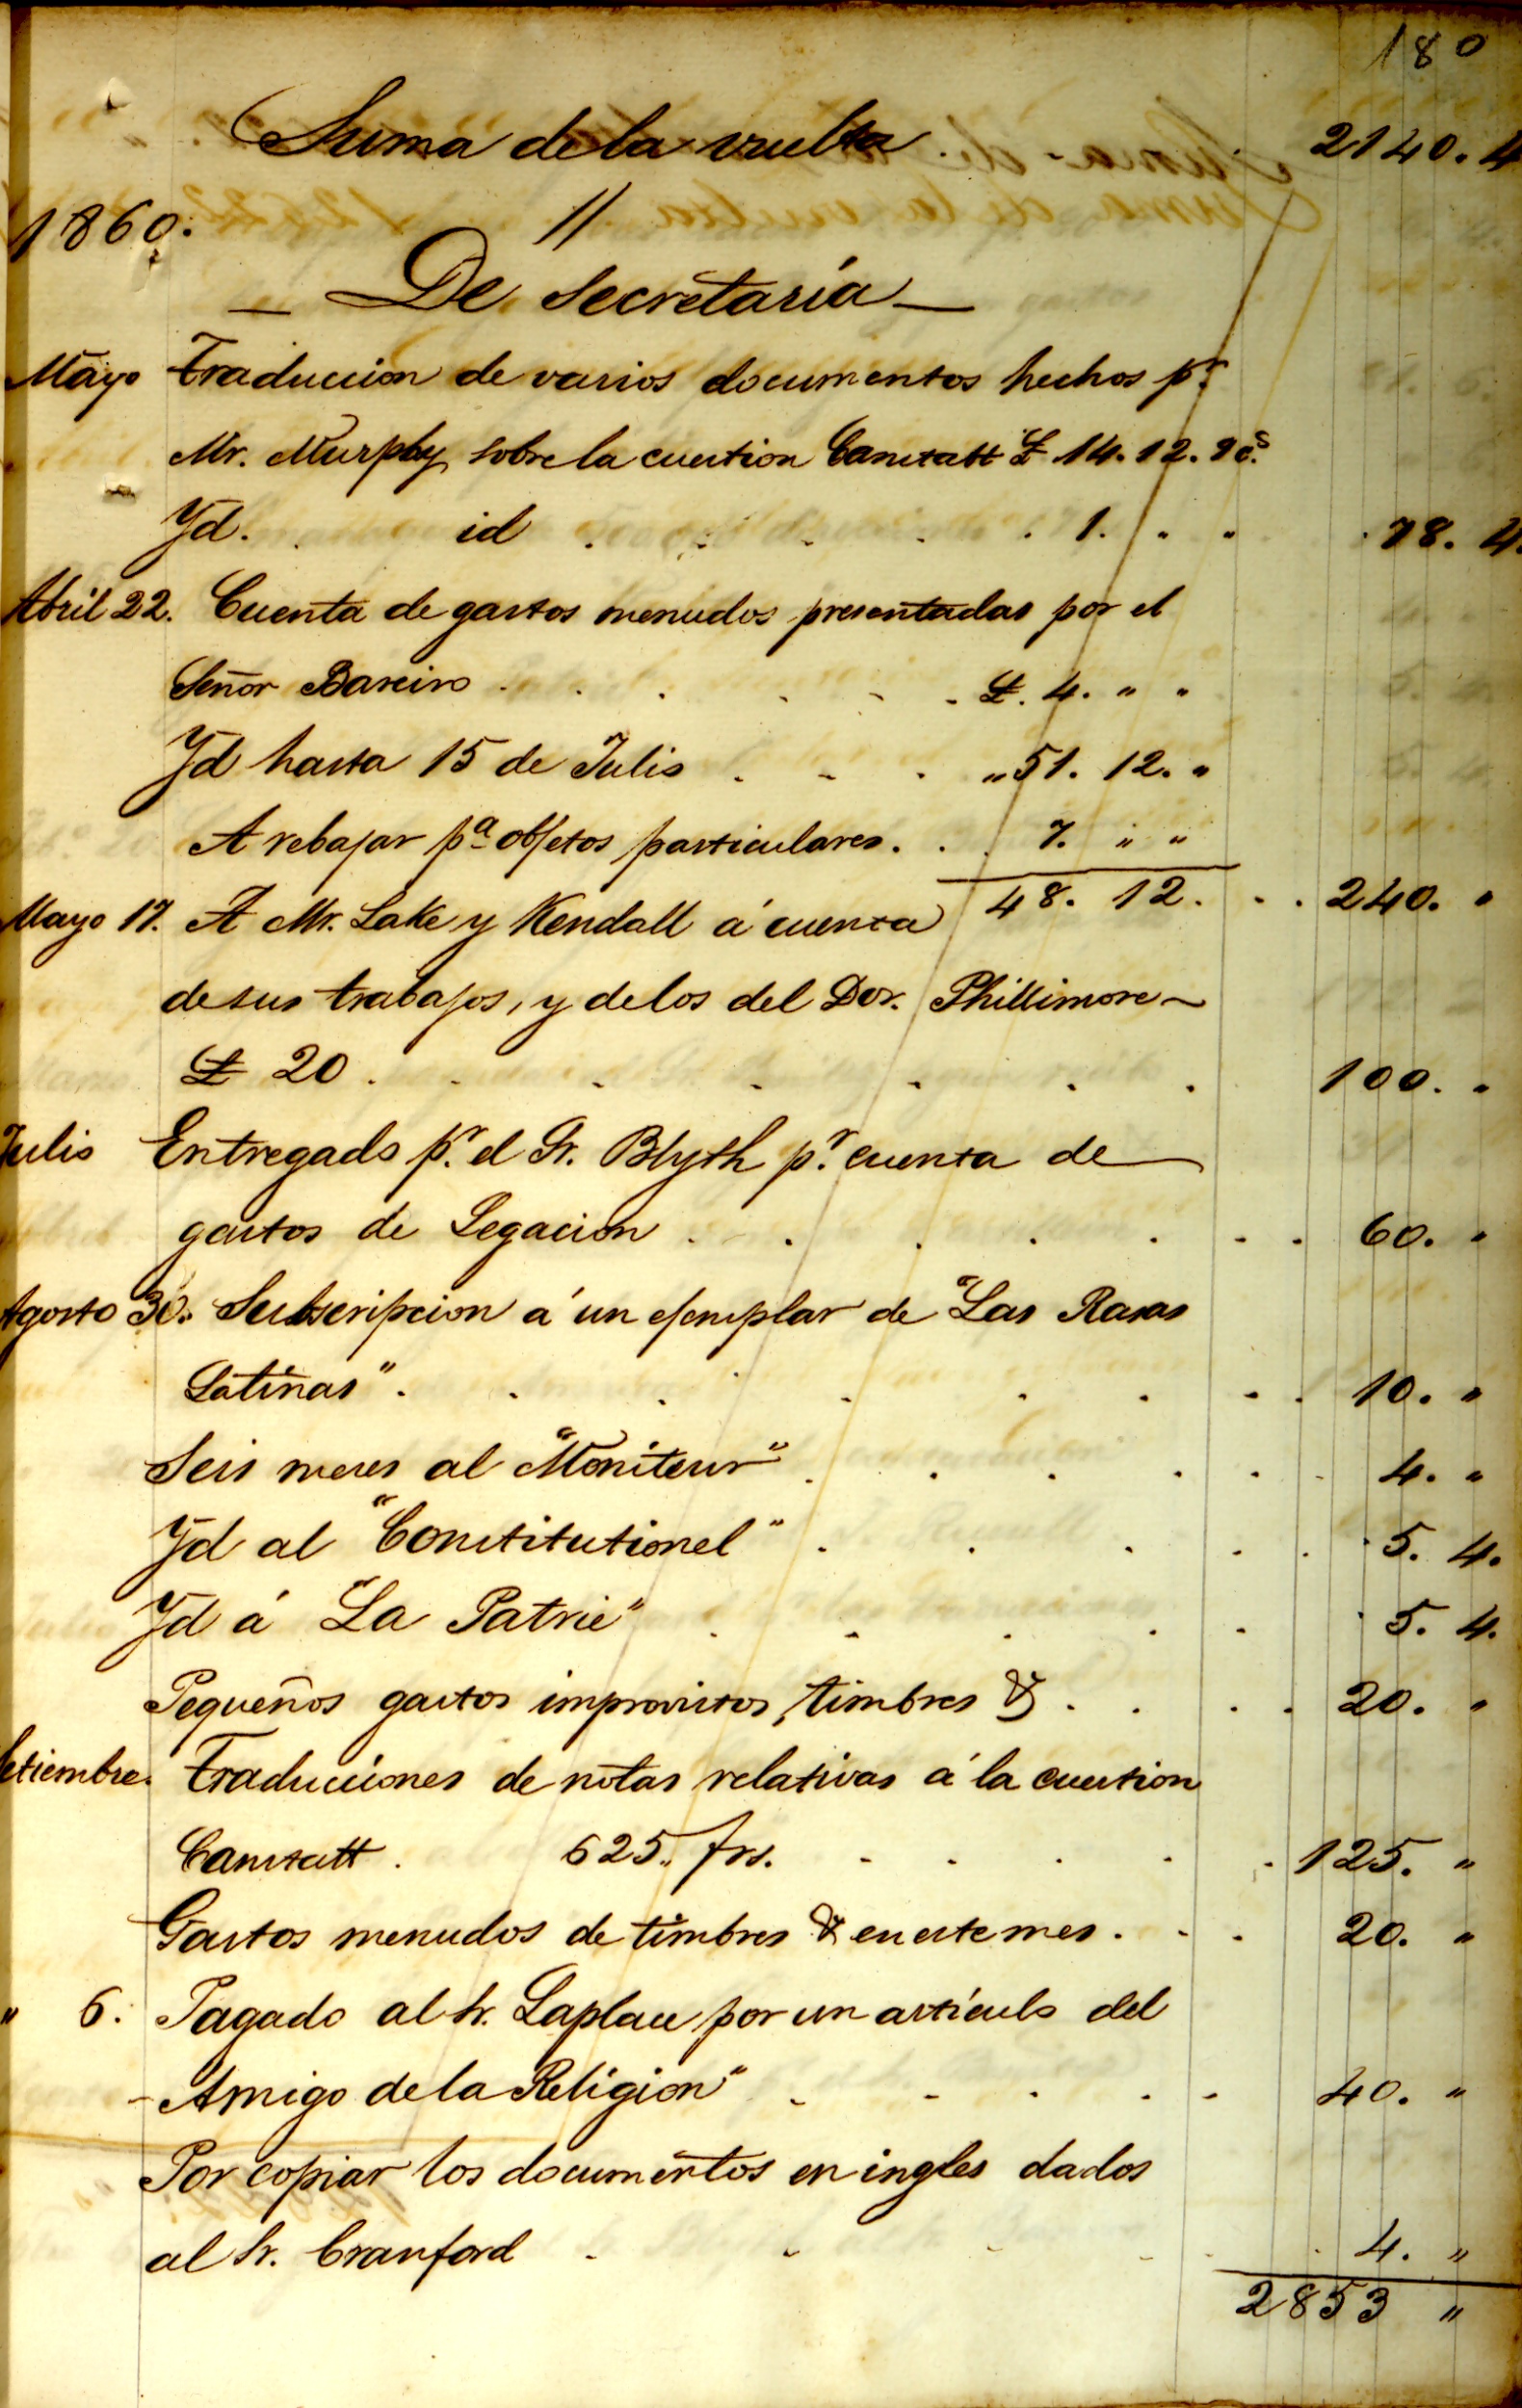 180
Suma de la vuelta. 2140. 4
1860. //
— De Secretaría —
Mayo Traduccion de varios documentos hechos pr.
Mr. Murphy, sobre la cuestion Canstatt £ 14. 12. 9 cs.
Yd. id . . . . . 1. " " . 78. 4.
Abril 22. Cuenta de gastos menudos presentadas por el
Señor Bareiro . . . . . £. 4. " "
Yd hasta 15 de Julio . . . " 51. 12. "
A rebajar pa. objetos particulares . . . 7. " "
48. 12. . . 240. "
Mayo 17. A Mr. Lake y Kendall á cuenta
de sus trabajos, y de los del Dor. Phillimore —
£ 20 . . . . . . . 100. "
Julio Entregado pr. el Sr. Blyth pr. cuenta de —
gastos de Legacion . . . . . . . 60. "
Agosto 30. Subscripcion á un ejemplar de "Las Rasas
Latinas" . . . . . . . . 10. "
Seis meses al "Moniteur" . . . . . . 4. "
Yd al "Constitutionel" . . . . . . 5. 4.
Yd á "La Patrie" . . . . . . 5. 4.
Pequeños gastos improvistos, timbres & . . . . 20. "
Setiembre. Traducciones de notas relativas á la cuestion
Canstatt . 625. frs. . . . . . 125. "
Gastos menudos de timbres & en este mes . . . 20. "
" 6. Pagado al Sr. Laplace por un artículo del
- Amigo de la Religion" . . . . . 40. "
Por copiar los documentos en ingles dados
al Sr. Cranford . . . . . . 4. "
2853 "